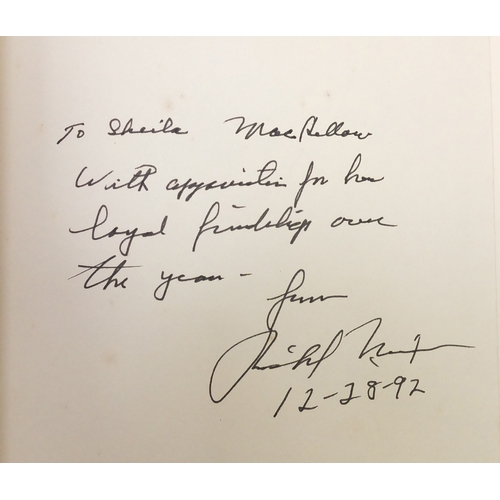 To Sheila MacKellow
With appreciation for her
loyal friendship over
the years -
from
Richard Nixon
12-28-92